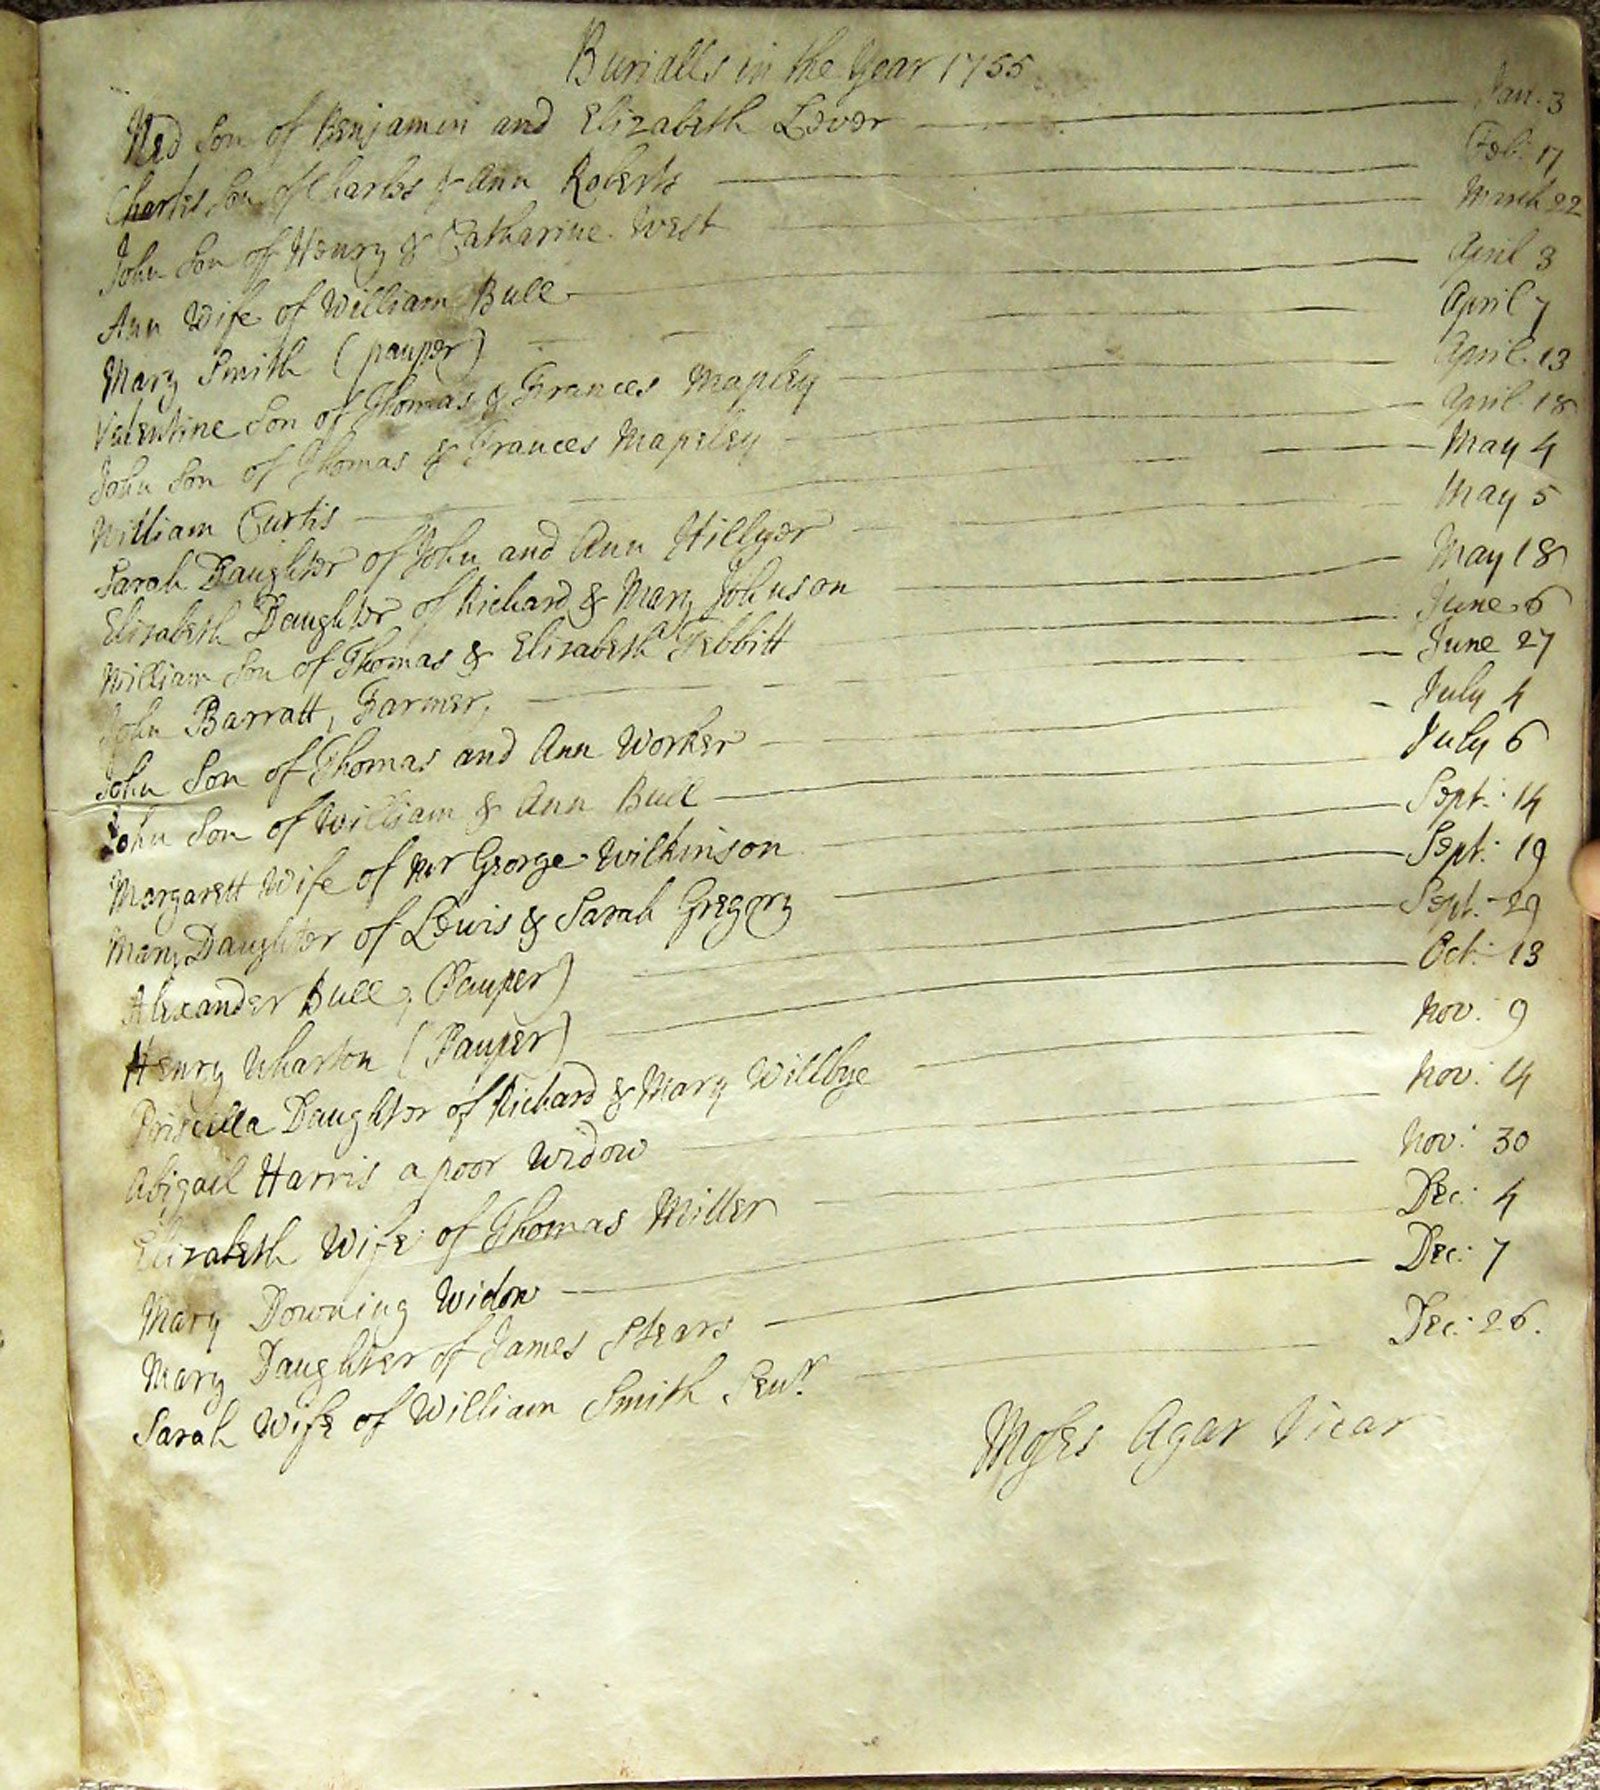 Burialls in the Year 1755
Ned Son of Benjamin and Elizabeth Lever Jan. 3
Charles Son of Charles & Ann Roberts Feb: 17
John Son of Henry & Catharine West March 22
Ann Wife of William Bull April 3
Mary Smith (pauper) April 7
Valentine Son of Thomas & Frances Mapley April 13
John Son of Thomas & Frances Mapeley April 18
William Curtis May 4
Sarah Daughter of John and Ann Hillyer May 5
Elizabeth Daughter of Richard & Mary Johnson May 18
William Son of Thomas & Elizabeth Tebbitt June 6
John Barratt, Farmer, June 27
John Son of Thomas and Ann Worker July 4
John Son of William & Ann Bull July 6
Margarett Wife of Mr George Wilkinson Sept: 14
Mary Daughter of Lewis & Sarah Gregory Sept: 19
Alexander Bull, (Pauper) Sept: 29
Henry Wharton (Pauper) Oct: 13
Priscilla Daughter of Richard & Mary Willbye Nov: 9
Abigail Harris a poor Widow Nov: 14
Elizabeth Wife of Thomas Miller Nov: 30
Mary Downing Widow Dec: 4
Mary Daughter of James Stears Dec: 7
Sarah Wife of William Smith Senr. Dec: 26.
Moses Agar Vicar